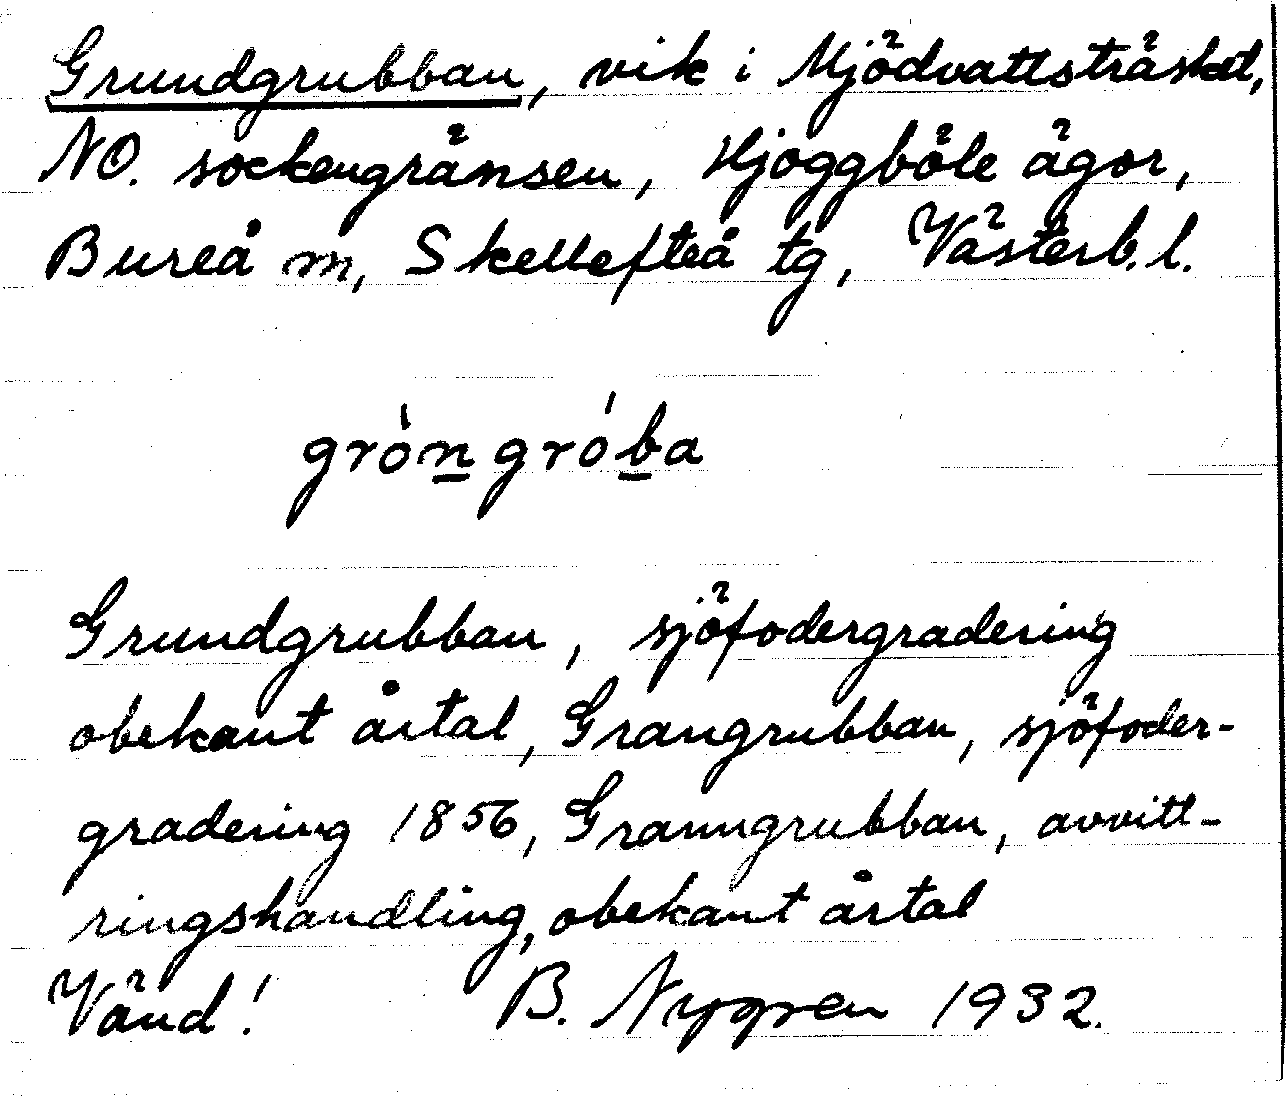 Grundgrubban, vik i Mjödvattsträsket,
NO. sockengränsen, Hjoggböle ägor,
Bureå m, Skellefteå tg, Västerb. l.
gròn gróba
Grundgrubban, sjöfodergradering
obekant årtal, Grangrubban, sjöfoder-
gradering 1856, Granngrubban, avvitt-
ringshandling, obekant årtal
Vänd! B. Nygren 1932.